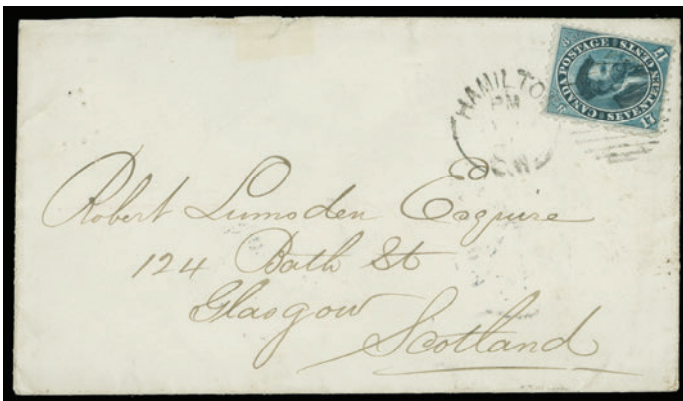 CANADA POSTAGE
SEVENTEEN CENTS
17
17
HAMILTON
PM
C.W
Robert Lumsden Esquire
124 Bath St
Glasgow
Scotland